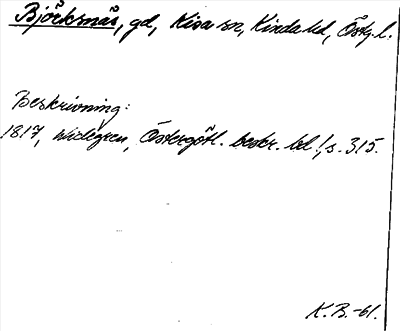 Björksnäs, gd, Kisa sn, Kinda hd, Östg. l.
Beskrivning:
1817, Widegren, Östergötl. beskr. bd 1, s. 315.
K.B. -61.